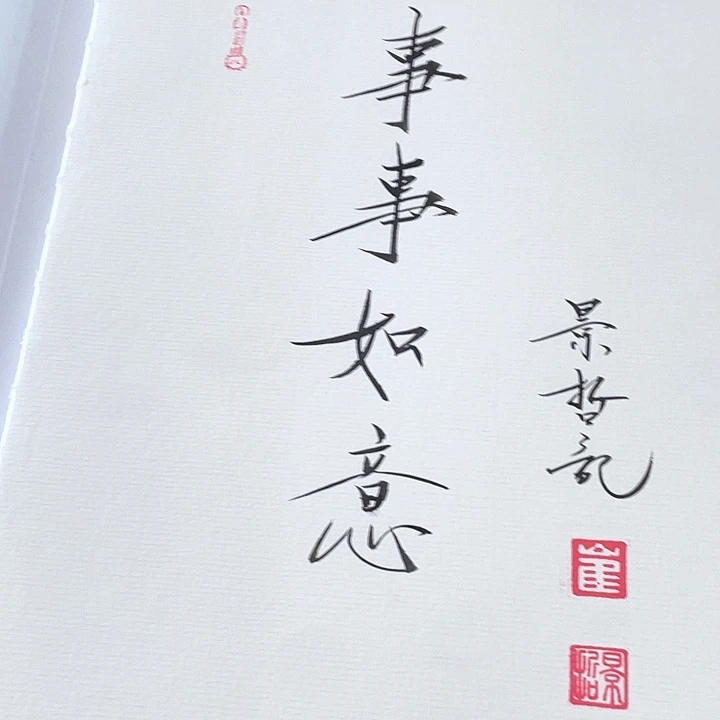 事事如意
景哲記
崔
景哲